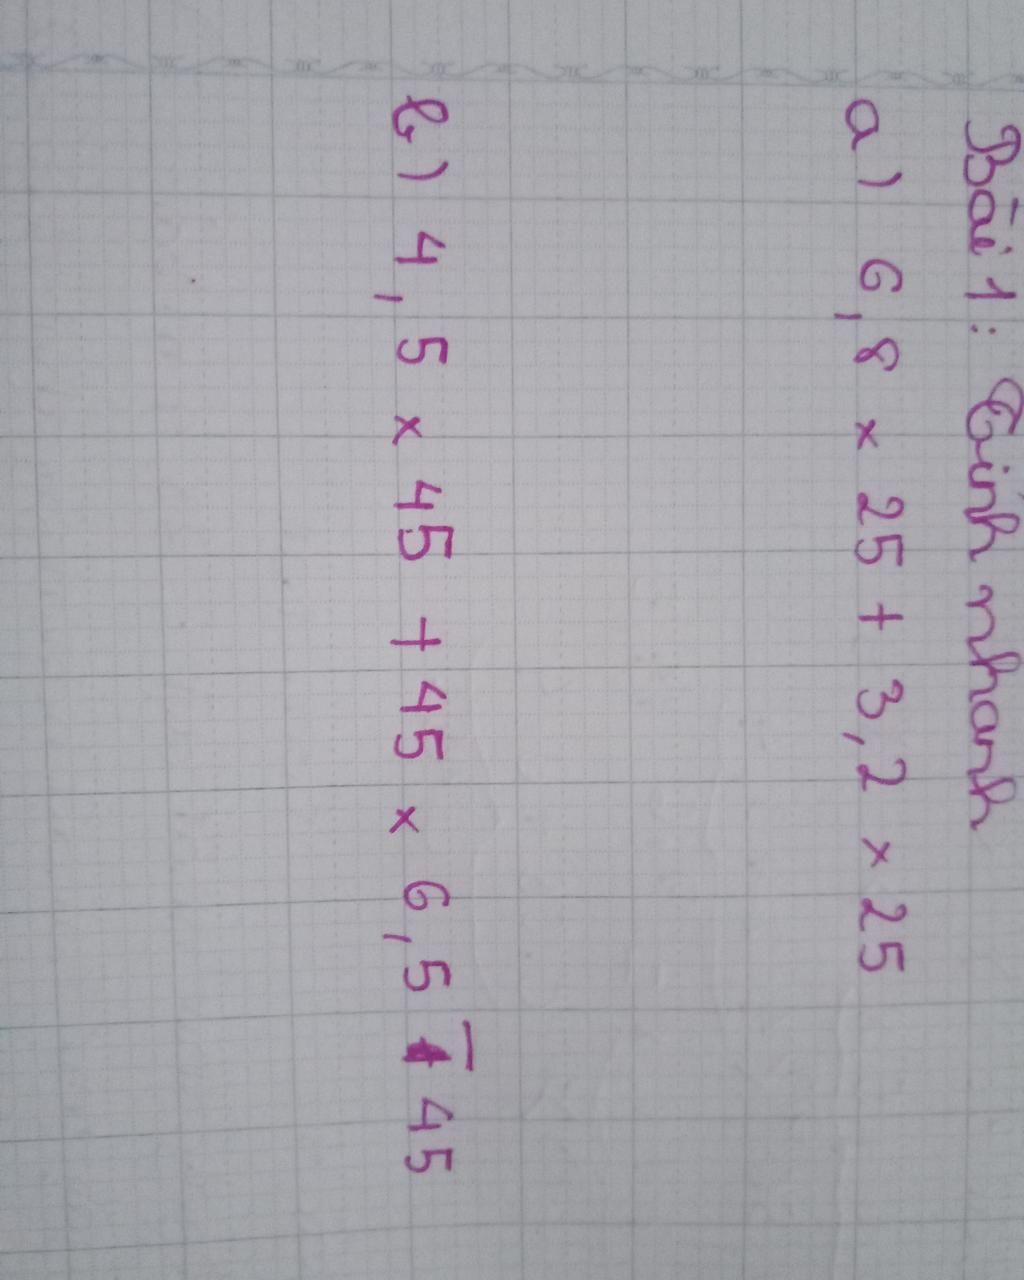 Bài 1: Tính nhanh
a) 6,8 × 25 + 3,2 × 25
b) 4,5 × 45 + 45 × 6,5 - 45